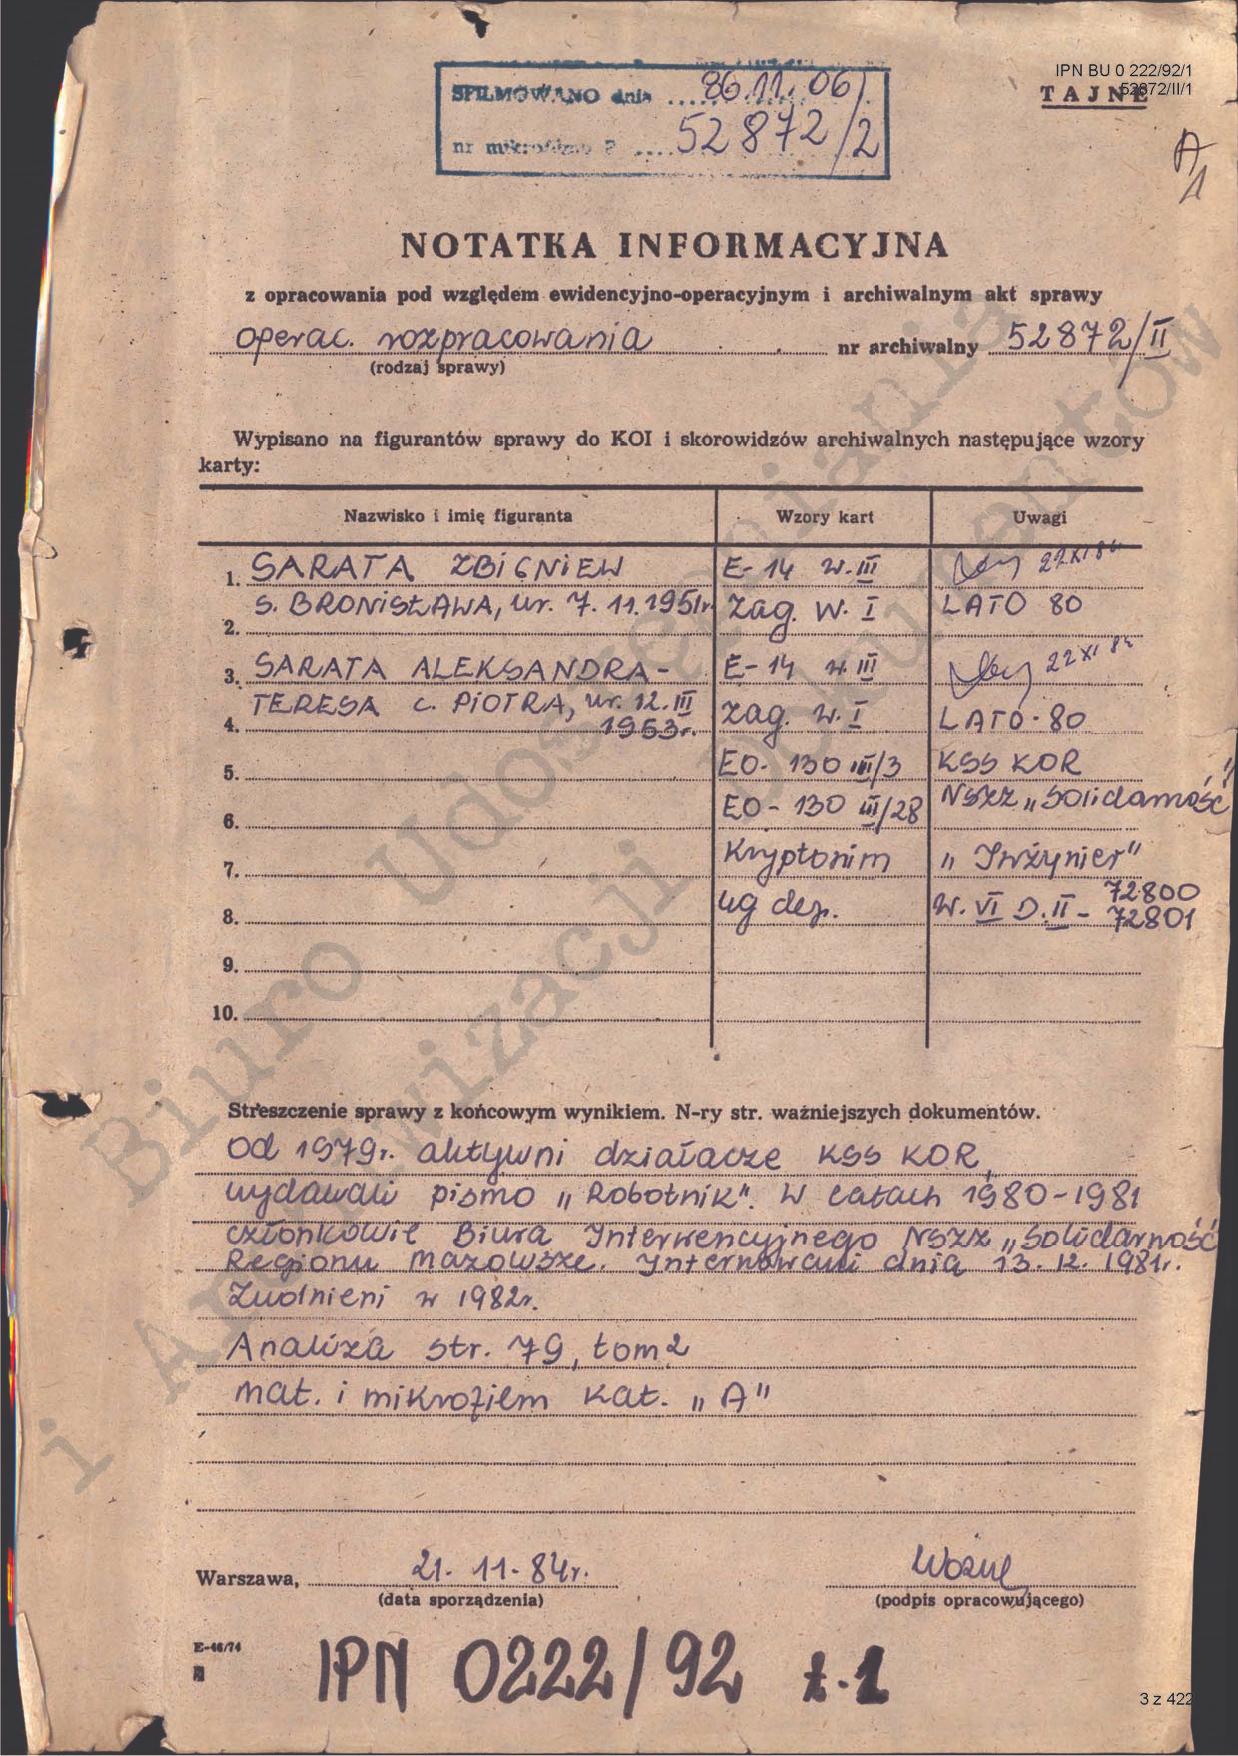 IPN BU 0 222/92/1
52872/II/1
TAJNE
SFILMOWANO dnia 86.11.06
nr mikrofilmu 52872/2
A/1
NOTATKA INFORMACYJNA
z opracowania pod względem ewidencyjno-operacyjnym i archiwalnym akt sprawy
operac. rozpracowania nr archiwalny 52872/II
(rodzaj sprawy)
Wypisano na figurantów sprawy do KOI i skorowidzów archiwalnych następujące wzory
karty:
Nazwisko i imię figuranta Wzory kart Uwagi
1. SARATA ZBIGNIEW E-14 w.III 22 XI 84
s. BRONISŁAWA, ur. 7.11.1951r. zag. w. I LATO 80
2.
3. SARATA ALEKSANDRA- E-14 w III 22 XI 84
TERESA c. PIOTRA, ur. 12.III zag. w. I LATO-80
4. 1953r.
5. EO-130 III/3 KSS KOR
6. EO-130 III/28 NSZZ „Solidarność"
7. Kryptonim „Inżynier"
8. wg dez. W. VI D.II - 72800
72801
9.
10.
Streszczenie sprawy z końcowym wynikiem. N-ry str. ważniejszych dokumentów.
Od 1979r. aktywni działacze KSS KOR,
wydawali pismo „Robotnik". W latach 1980-1981
członkowie Biura Interwencyjnego NSZZ „Solidarność"
Regionu Mazowsze. Internowani dnia 13.12.1981r.
Zwolnieni w 1982r.
Analiza str. 79, tom 2
mat. i mikrofilm kat. „A"
Warszawa, 21.11.84r.
(data sporządzenia) (podpis opracowującego)
E-46/74
IPN 0222/92 t.1
3 z 422
Biuro Udostępniania
i Archiwizacji Dokumentów